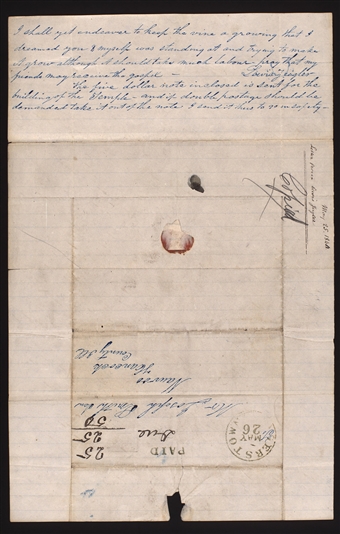 I shall yet endeavor to keep the vine a growing that I
dreamed you & myself was standing at and trying to make
it grow although it should take much labour. pray that my
friends may receive the gospel —
The five dollar note inclosed is sent for the
building of the Temple — and if double postage should be
demanded take it out of the note I send it thus to go safely —
May 25, 1844
Copied
Mr Joseph Smith
Nauvoo
Hancock
County Ill
PAID
Due
25
25
50
ERSTOW
MAY
26